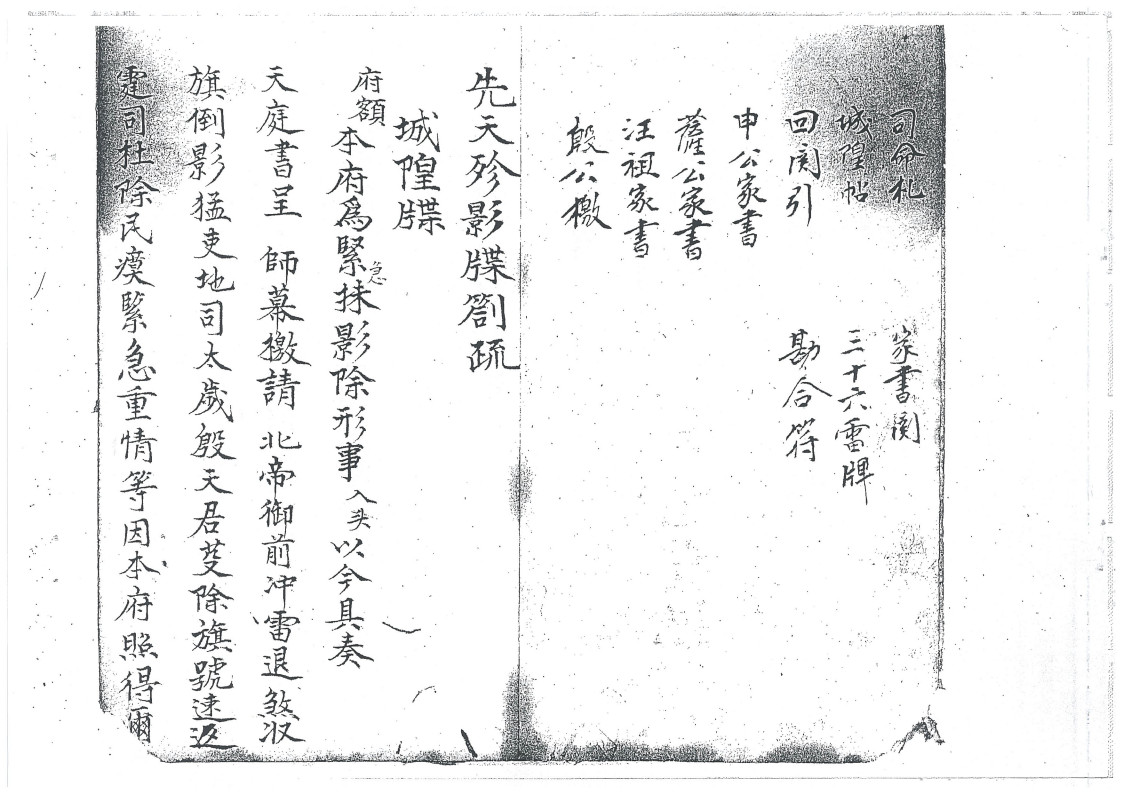 司命札
城隍帖
回関引
申公家書
薩公家書
汪祖家書
殷公檄
家書関
三十六雷牌
勘合符
先天殄影牒劄疏
城隍牒
府額本府為緊急抹影除形事入头以今具奏
天庭書呈 師幕檄請 北帝御前冲雷退煞収
旗倒影猛吏地司太歲殷天君芟除旗號速返
霆司扗除民瘼緊急重情等因本府照得爾